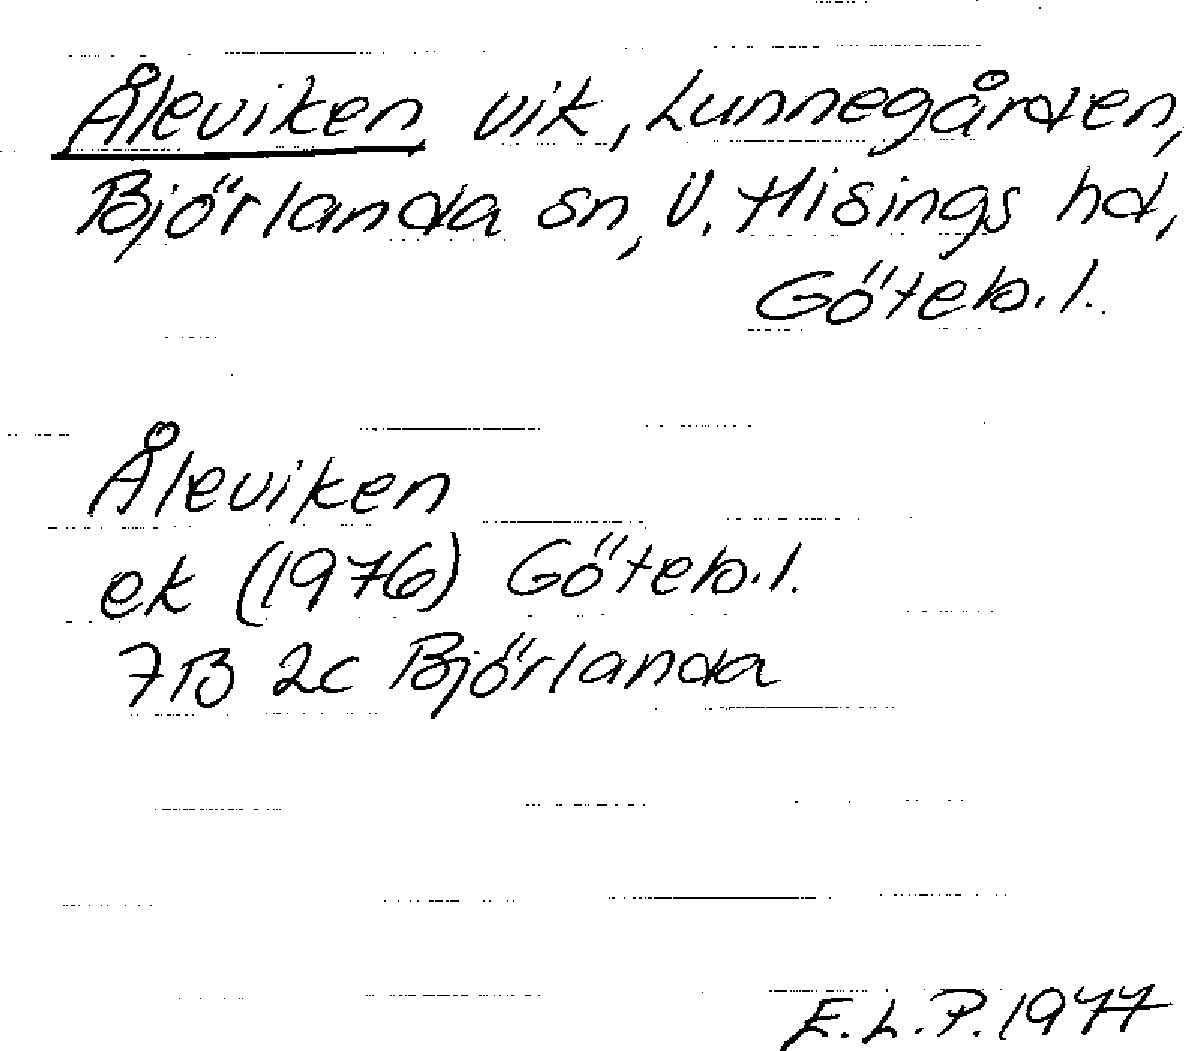 Åleviken vik, Lunnegården,
Björlanda sn, V. Hisings hd,
Göteb.l.
Åleviken
ek (1976) Göteb.l.
7B 2c Björlanda
E.L.P. 1977